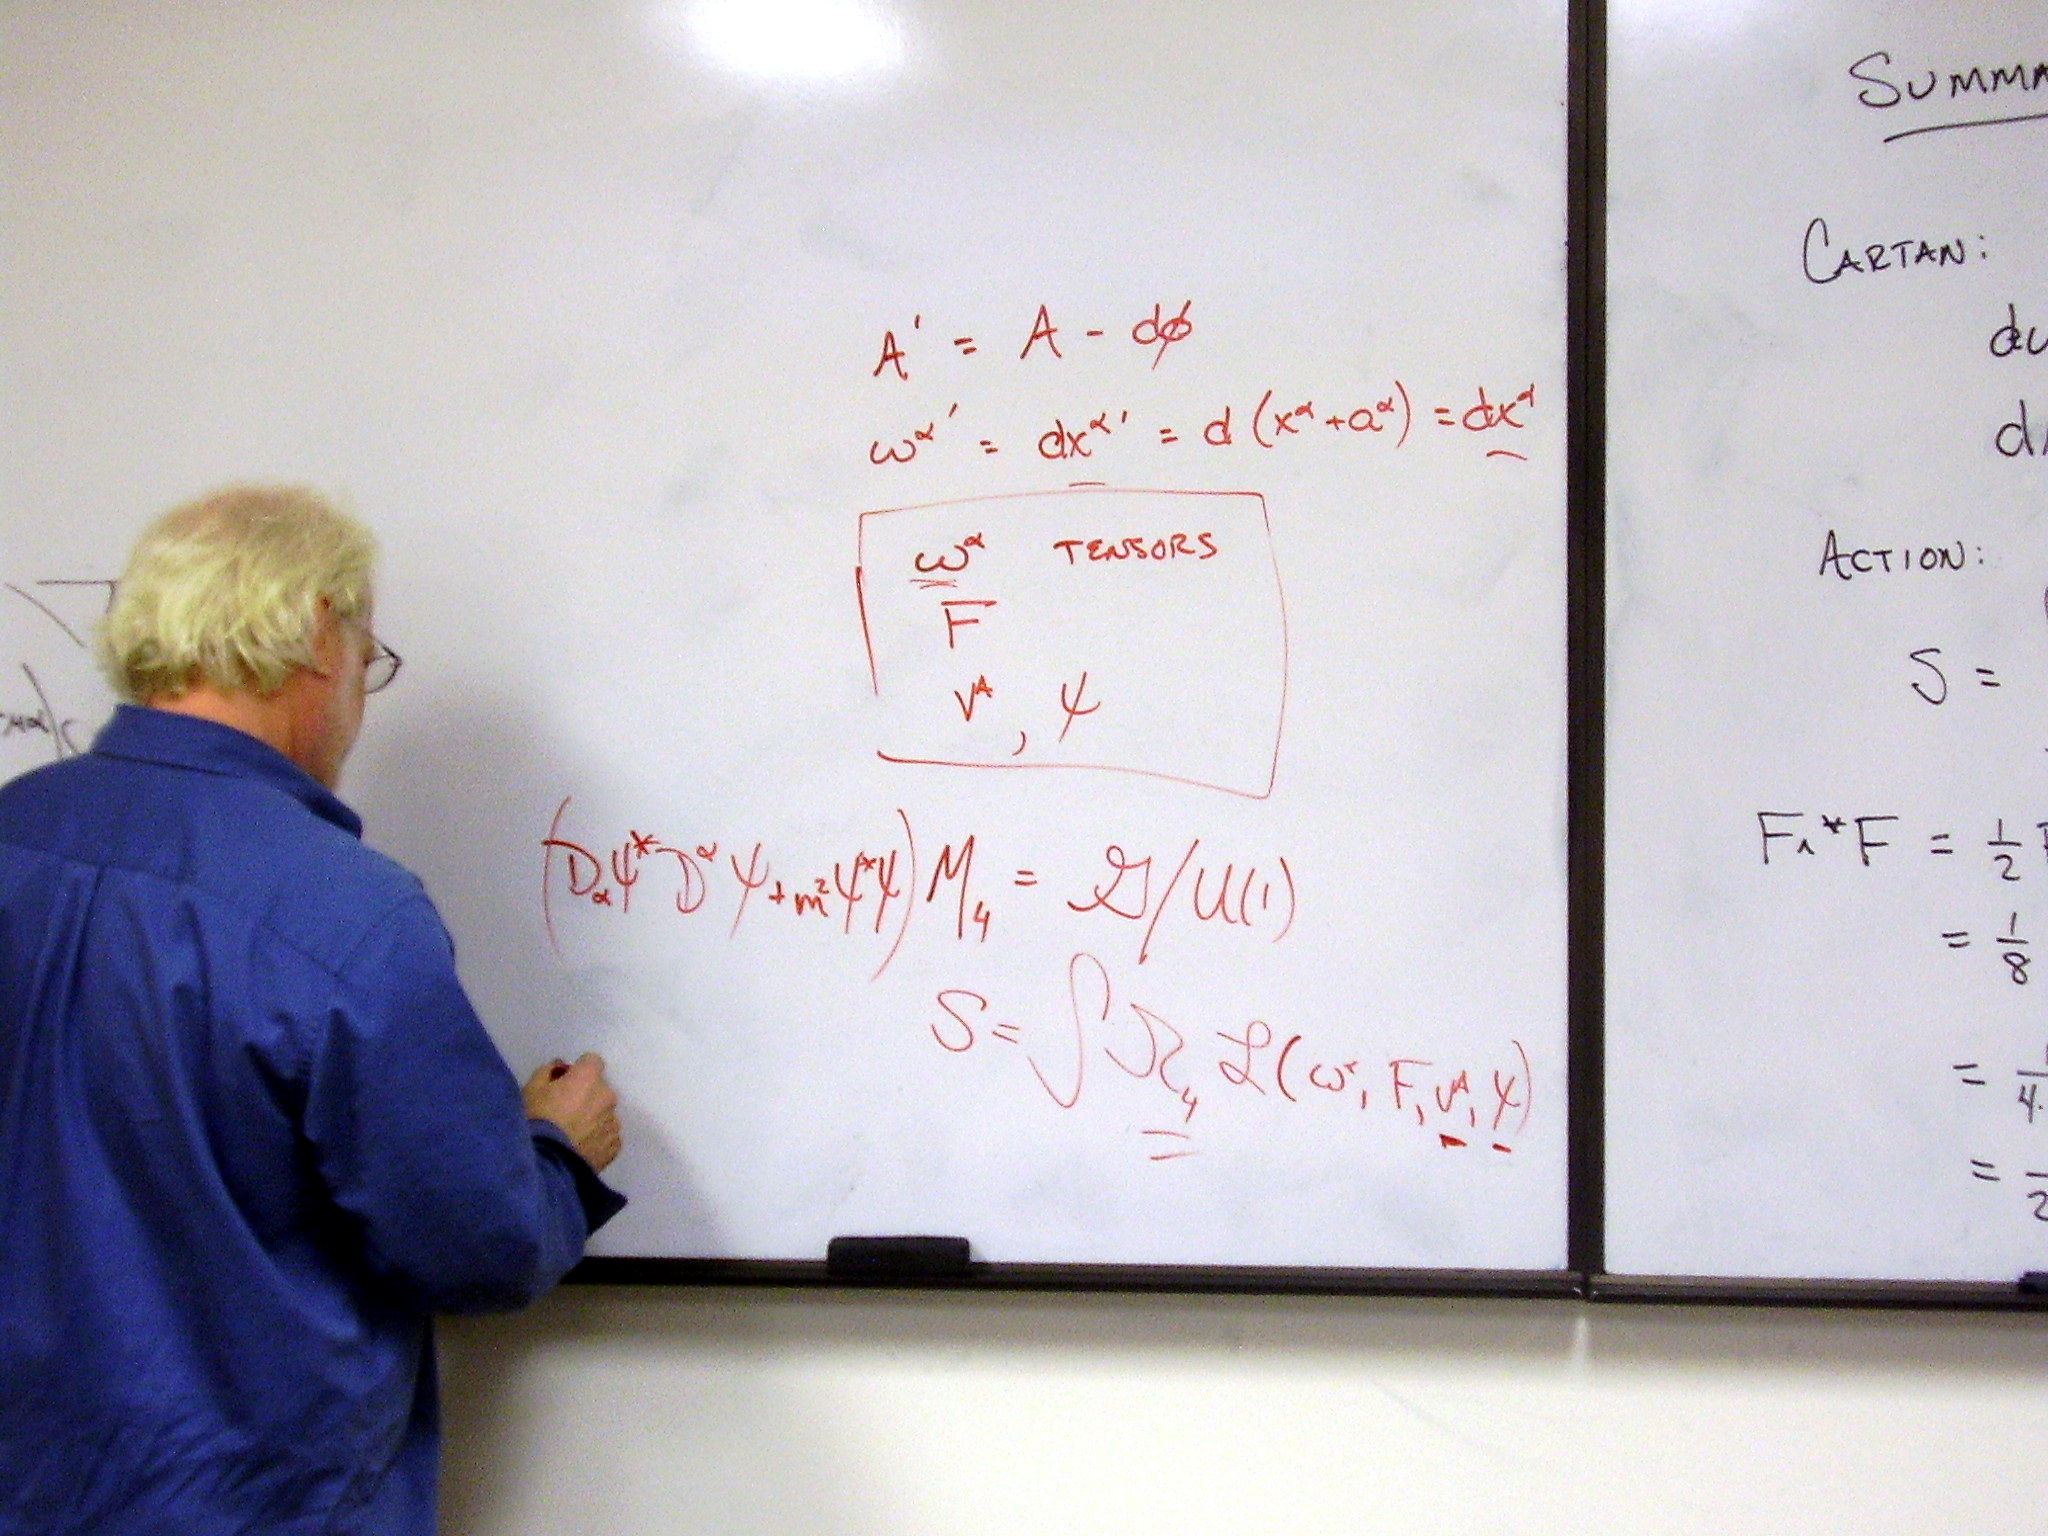 A' = A - dϕ
ω^α' = dx^α' = d (x^α + a^α) = dx^α
ω^α TENSORS
F
v^A, ψ
(D_α ψ* D^α ψ + m² ψ*ψ) M₄ = 𝒢/U(1)
S = ∫ ₄ ℒ(ω^α, F, v^A, ψ)
SUMMA
CARTAN:
d
d
ACTION:
S =
F∧*F = 1/2
= 1/8
=
=